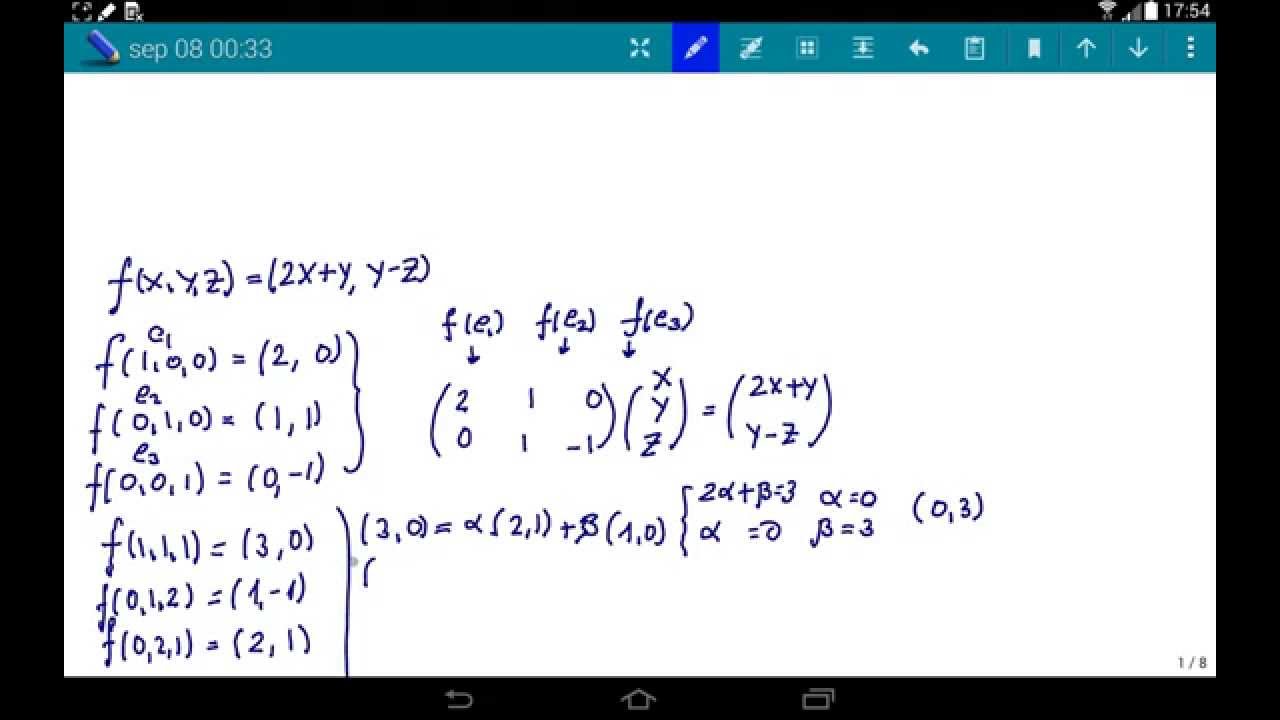 17:54
sep 08 00:33
f(x,y,z) = (2x+y, y-z)
e₁
f(1,0,0) = (2, 0)
e₂
f(0,1,0) = (1, 1)
e₃
f(0,0,1) = (0,-1)
f(e₁) f(e₂) f(e₃)
↓ ↓ ↓
(2 1 0) (x) = (2x+y)
(0 1 -1) (y) (y-z)
(z)
f(1,1,1) = (3,0)
f(0,1,2) = (1,-1)
f(0,2,1) = (2,1)
(3,0) = α(2,1) + β(1,0) { 2α+β=3 α=0 (0,3)
α =0 β=3
(
1 / 8